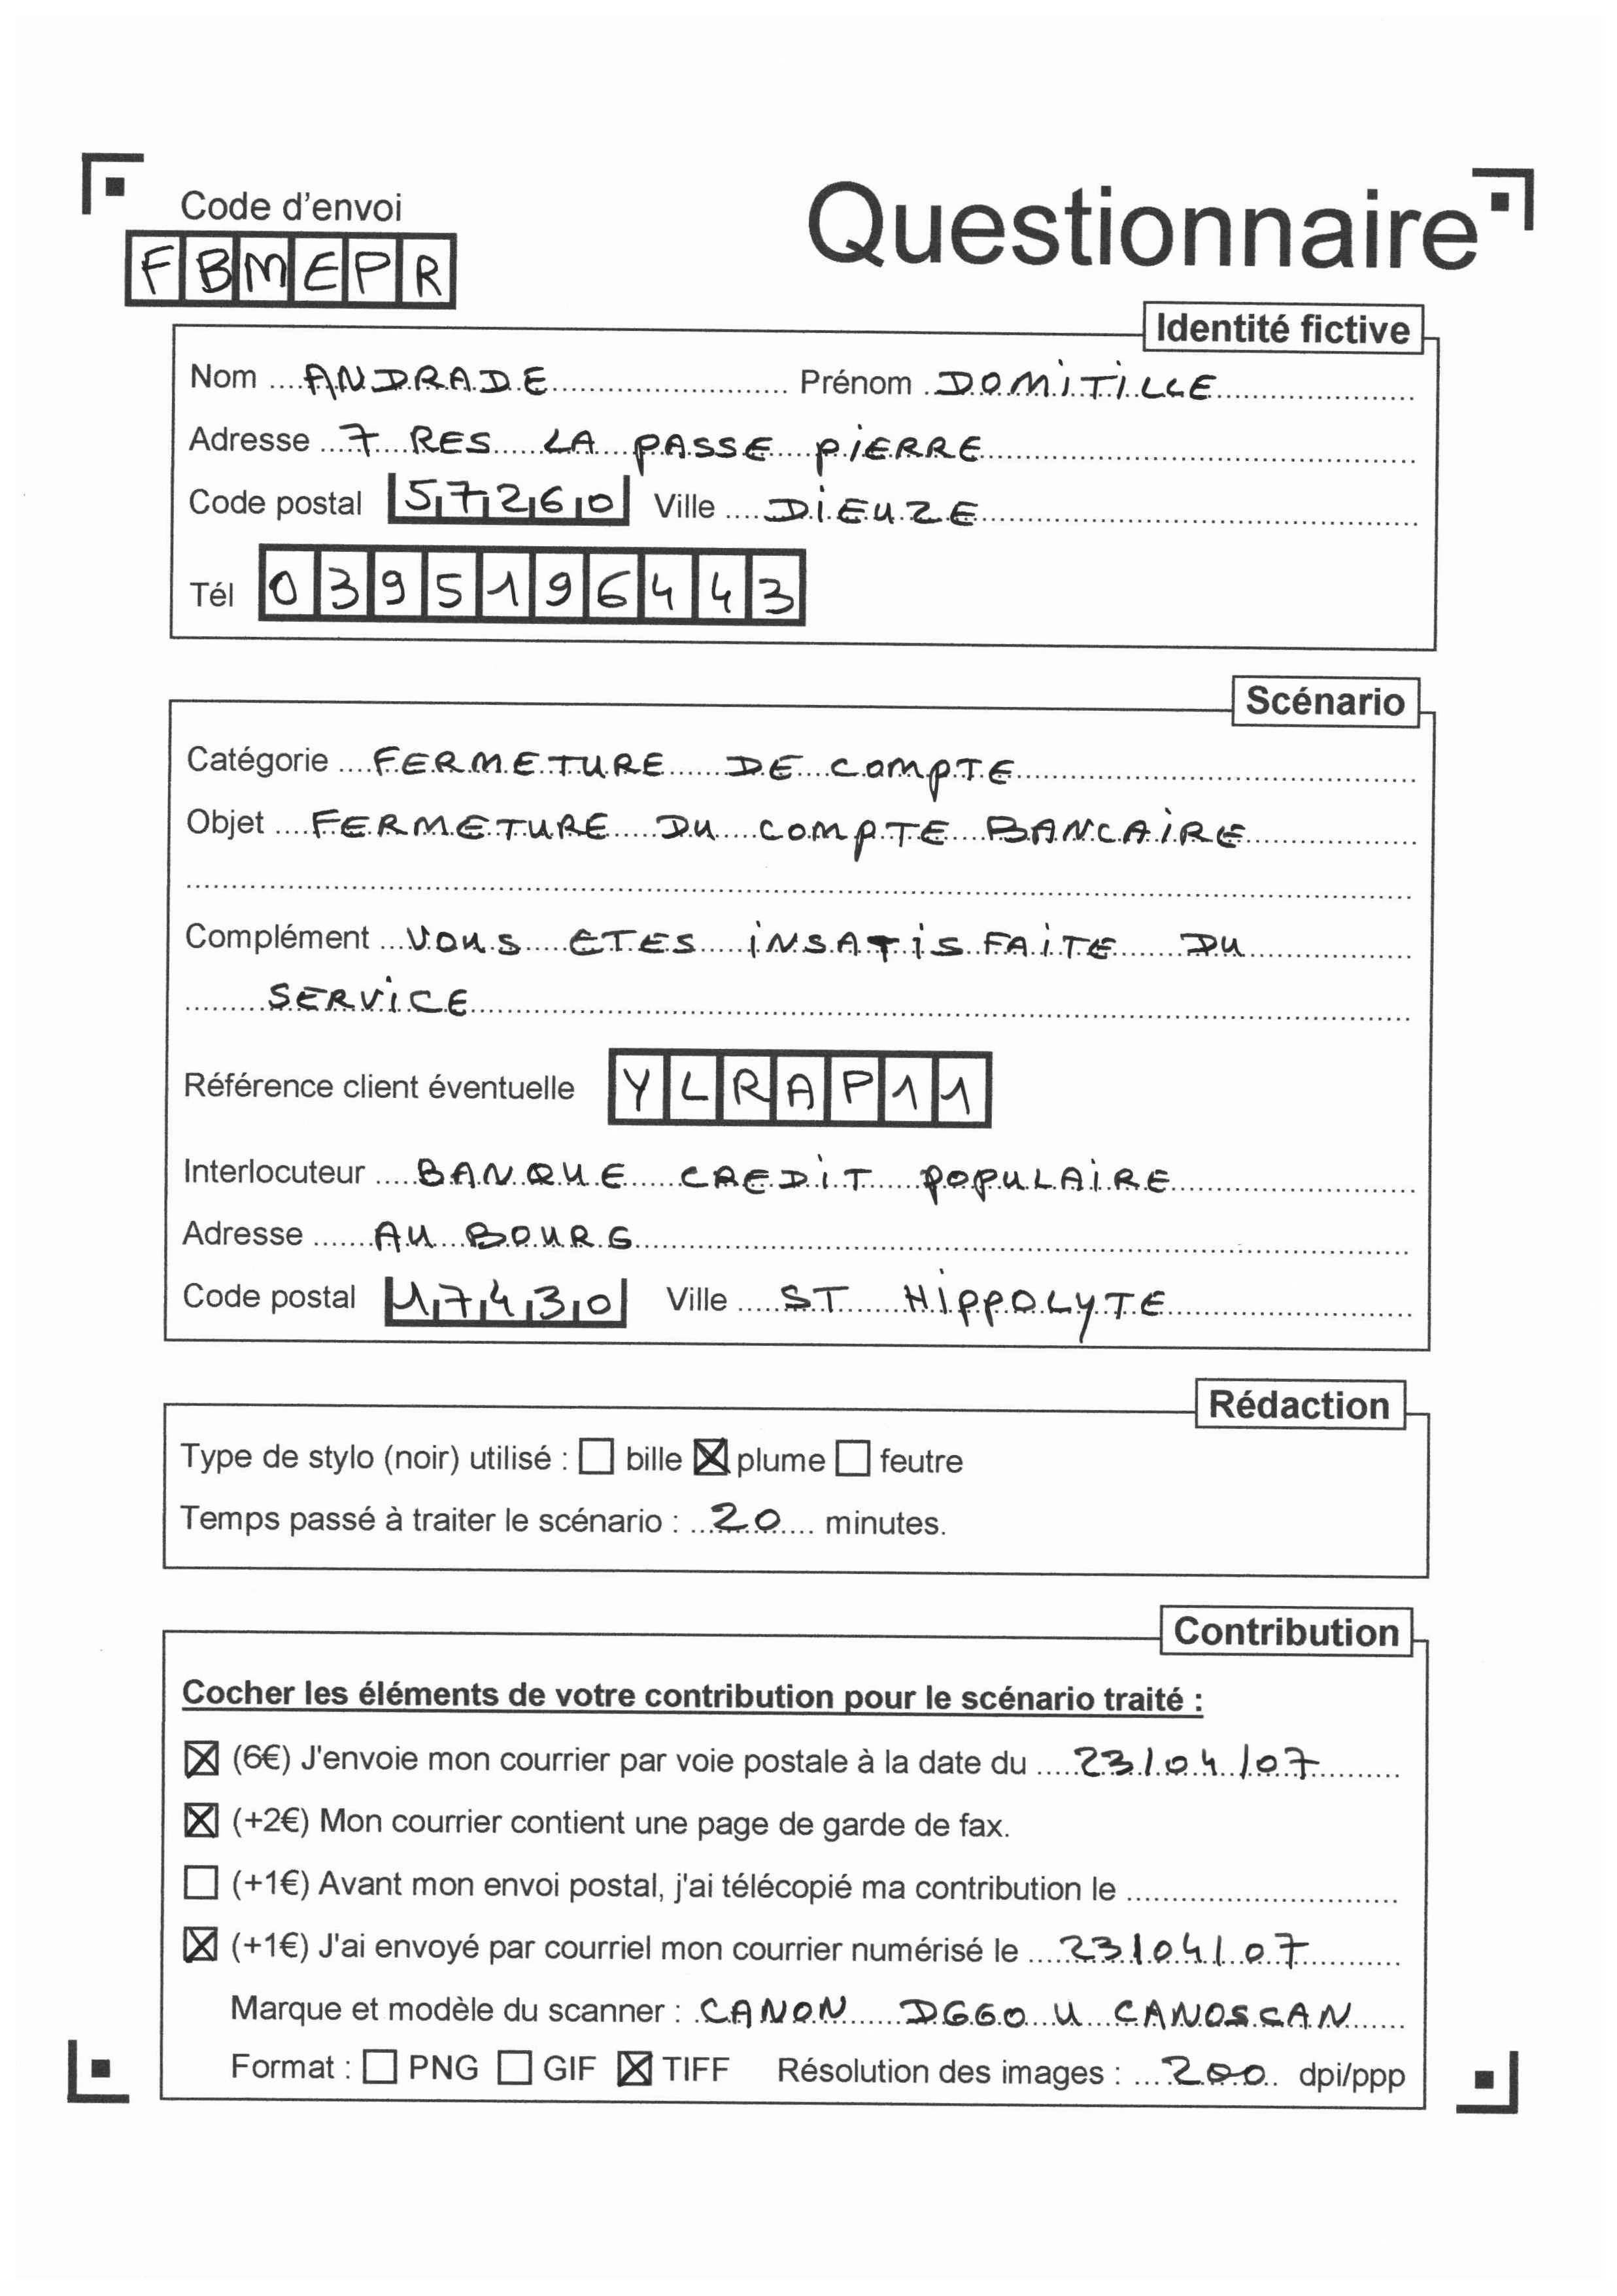 Code d'envoi
Questionnaire
FBMEPR
Identité fictive
Nom ANDRADE Prénom DOMITILLE
Adresse 7 RES LA PASSE PIERRE
Code postal 57260 Ville DIEUZE
Tél 0395196443
Scénario
Catégorie FERMETURE DE COMPTE
Objet FERMETURE DU COMPTE BANCAIRE
Complément VOUS ETES INSATISFAITE DU
SERVICE
Référence client éventuelle YLRAP11
Interlocuteur BANQUE CREDIT POPULAIRE
Adresse AU BOURG
Code postal 17430 Ville ST HIPPOLYTE
Rédaction
Type de stylo (noir) utilisé : bille plume feutre
Temps passé à traiter le scénario : 20 minutes.
Contribution
Cocher les éléments de votre contribution pour le scénario traité :
(6€) J'envoie mon courrier par voie postale à la date du 23/04/07
(+2€) Mon courrier contient une page de garde de fax.
(+1€) Avant mon envoi postal, j'ai télécopié ma contribution le
(+1€) J'ai envoyé par courriel mon courrier numérisé le 23/04/07
Marque et modèle du scanner : CANON D660 U CANOSCAN
Format : PNG GIF TIFF Résolution des images : 200 dpi/ppp